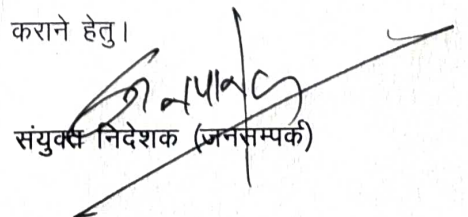 कराने हेतु।
संयुक्त निदेशक (जनसम्पर्क)